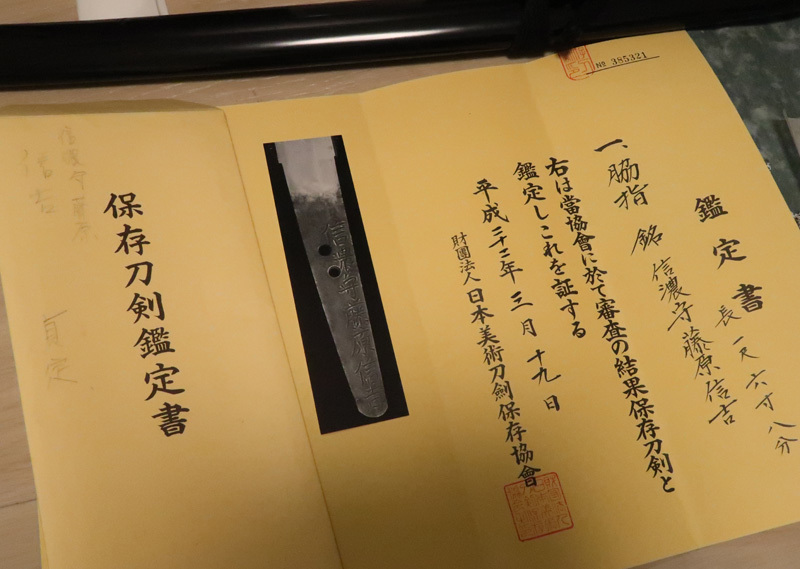 № 385321
鑑定書
一、脇指 銘 信濃守藤原信吉
長一尺六寸八分
右は當協會に於て審査の結果保存刀剣と
鑑定しこれを証する
平成二十二年三月十九日
財團法人日本美術刀剣保存協會
保存刀剣鑑定書
信濃守藤原
信吉